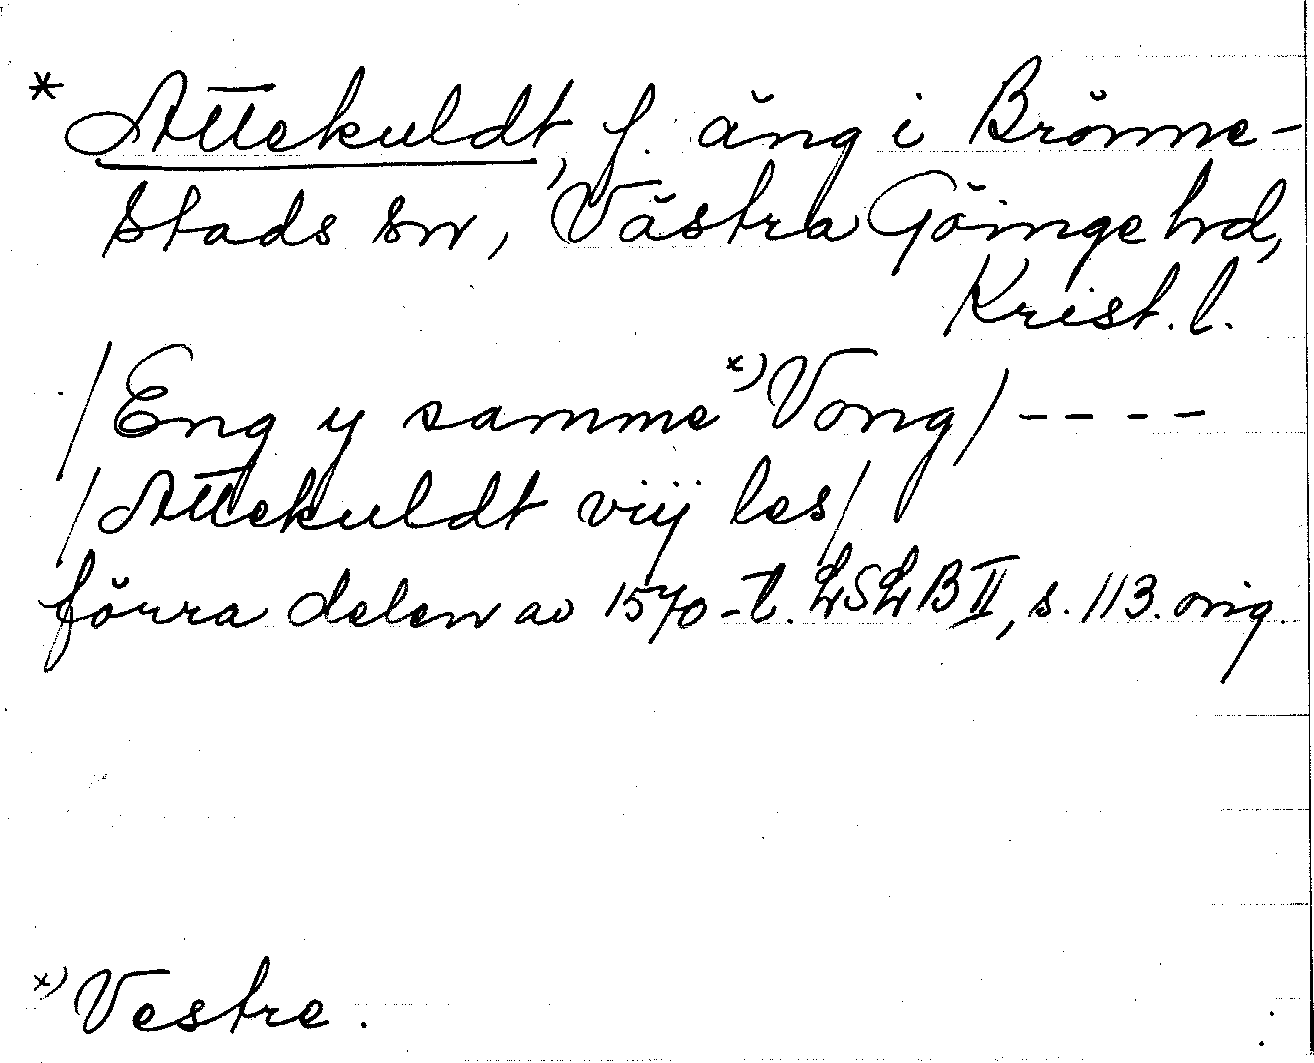 * Attekuldt, f. äng i Brönne-
stads sn, Västra Göinge hd,
Krist. l.
/Eng y samme *) Vong/ - - - -
/Attekuldt vij les/
förra delen av 1570-t. LSLB II, s. 113. orig.
*) Vestre.